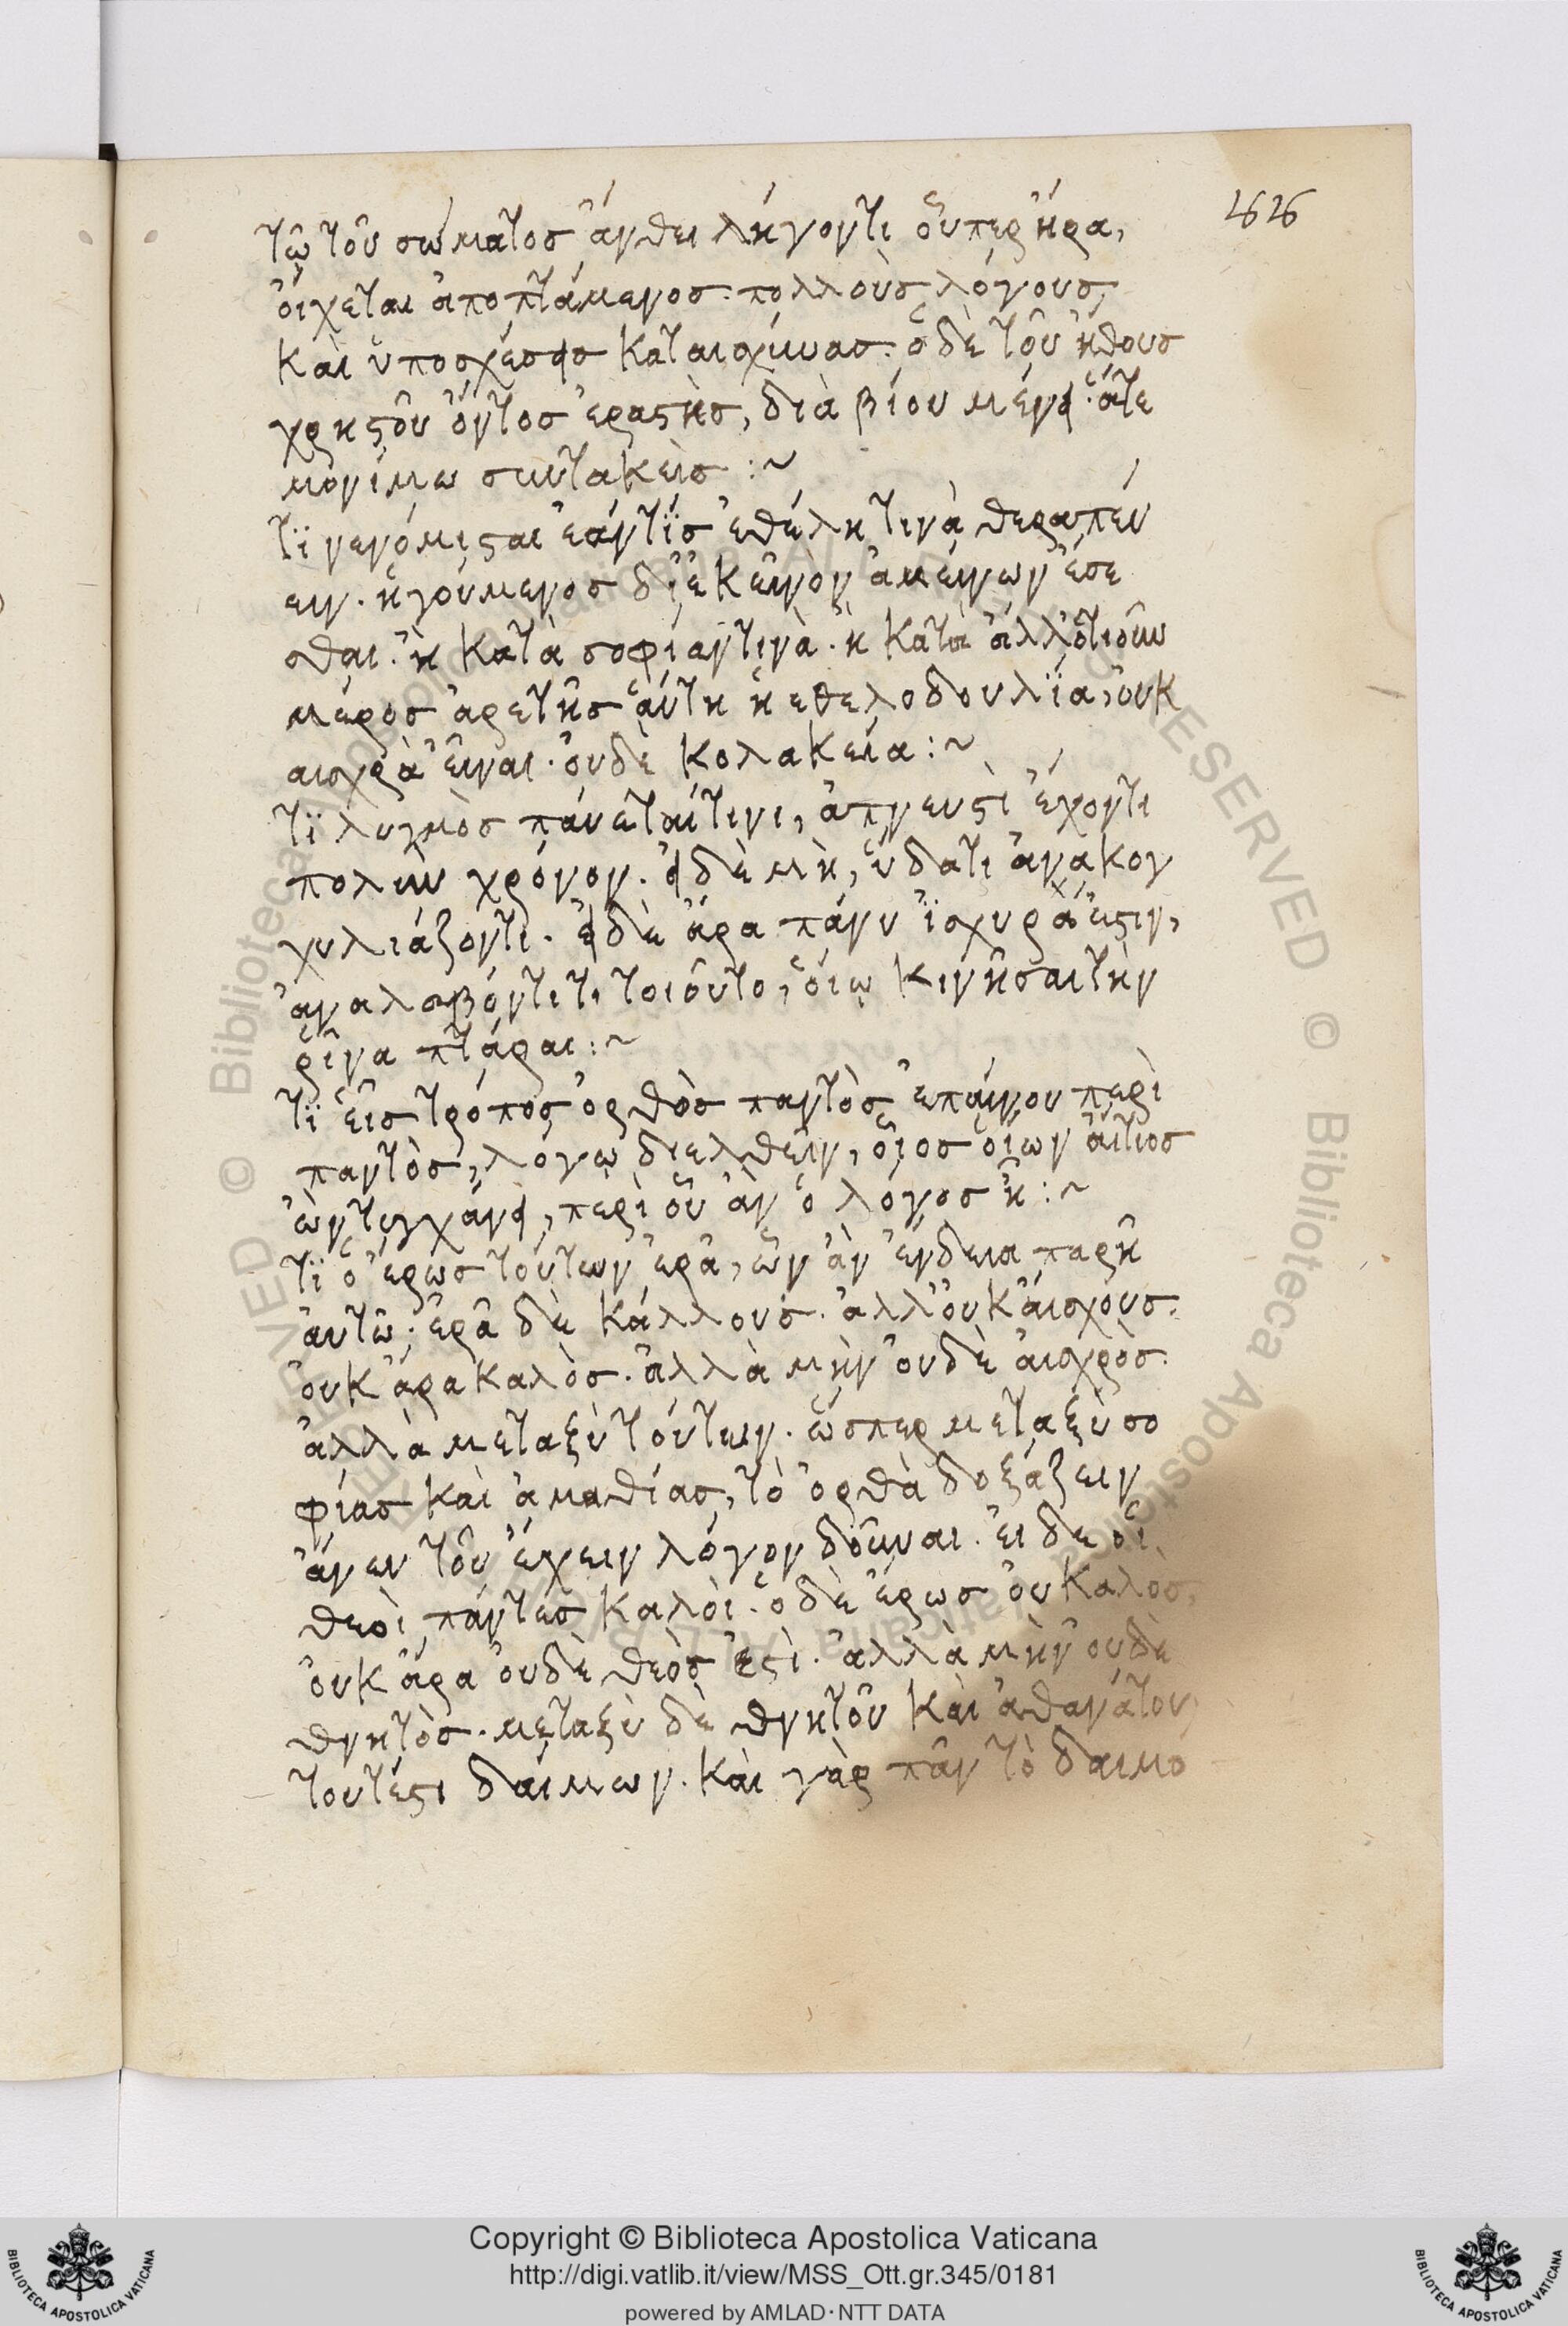 τῶ τοῦ σώματος ἄνθει λήγοντι οὗπερ ἤρα,
οἴχεται ἀποπτάμενος· πολλοὺς λόγους
καὶ ὑποσχέσεις καταισχύνας· ὁ δὲ τοῦ ἤθους
χρηστοῦ ὄντος ἐραστὴς, διὰ βίου μένει· ἅτε
μονίμω συντακεὶς :~
τϊ νενόμισται ἐάν τϊς ἐθέλη τινὰ θεραπεύ
ειν. ἡγούμενος δι' ἐκεῖνον ἀμείνων ἔσε
σθαι. ἢ κατὰ σοφίαν τινὰ. ἢ κατὰ ἄλλο ὁτιοῦν
μέρος ἀρετῆς αὕτη ἡ εθελοδουλϊα, οὐκ
αισχρὰ εἶναι. οὐδὲ κολακεία :~
τϊ λυγμὸς παύεταί τινι, ἀπνευστὶ ἔχοντι
πολὺν χρόνον. εἰ δὲ μὴ, ὕδατι ἀνακογ
χυλιάζοντι. εἰ δὲ ἄρα πάνυ ἰσχυρά ἐστιν,
ἀναλαβόντι τι τοιοῦτο, οἵω κινήσαι τὴν
ῥῖνα πτάραι :~
τϊ εἷς τρόπος ὀρθὸς παντὸς ἐπαίνου περὶ
παντὸς, λόγω διελθεῖν, οἷος οἵων αἴτιος
ὢν τυγχάνει, περὶ οὗ ἂν ὁ λόγος ἦ :~
τϊ ὁ ἔρως τούτων ἐρᾶ, ὧν ἂν ἔνδεια παρῆ
αὐτῶ· ἐρᾶ δὲ κάλλους. ἀλλ' οὐκ αἴσχους.
οὐκ ἄρα καλὸς. ἀλλὰ μὴν οὐδὲ αἰσχρὸς.
ἀλλὰ μεταξὺ τούτων. ὥσπερ μεταξὺ σο
φίας καὶ ἀμαθίας, τὸ ὀρθὰ δοξάζειν
ἄνευ τοῦ ἔχειν λόγον δοῦναι. εἰ δε οἱ
θεοὶ πάντες καλοὶ. ὁ δὲ ἔρως οὐ καλὸς,
οὐκ ἄρα οὐδὲ θεός ἐστὶ. ἀλλὰ μὴν οὐδὲ
θνητὸς. μεταξὺ δὲ θνητοῦ καὶ ἀθανάτου,
τουτέστι δαίμων. καὶ γὰρ πᾶν τὸ δαιμό
Copyright © Biblioteca Apostolica Vaticana
http://digi.vatlib.it/view/MSS_Ott.gr.345/0181
powered by AMLAD·NTT DATA
BIBLIOTECA APOSTOLICA VATICANA
BIBLIOTECA APOSTOLICA VATICANA